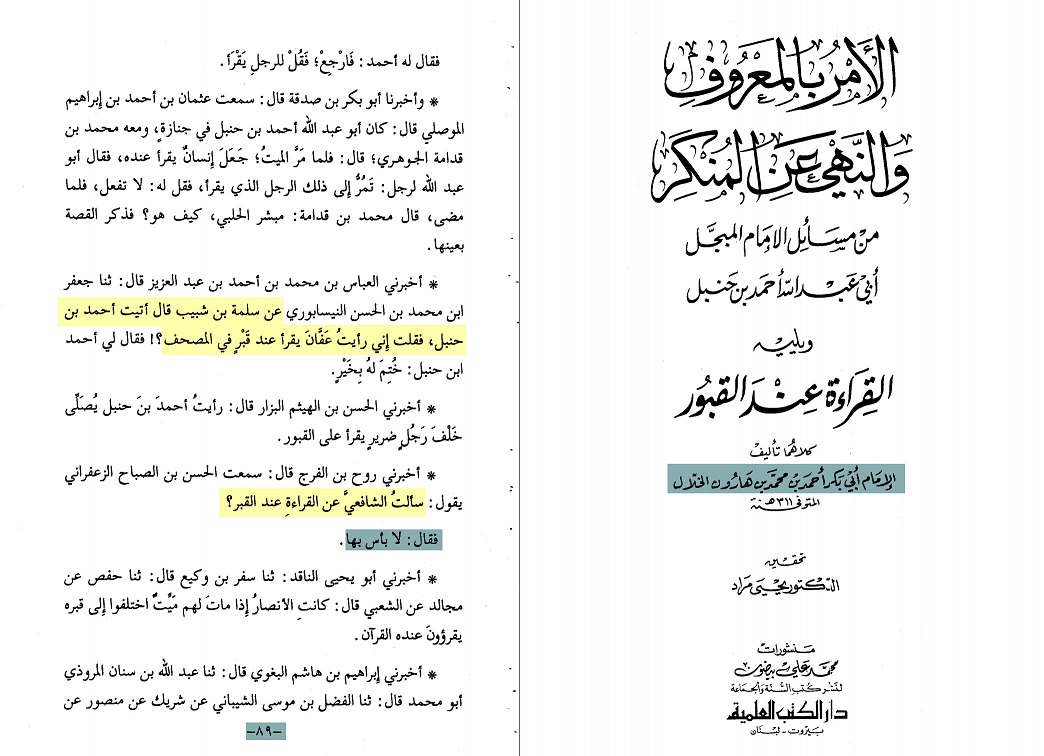 الأمر بالمعروف
والنهي عن المنكر
من مسائل الإمام المبجل
أبي عبد الله أحمد بن حنبل
ويليه
القراءة عند القبور
كلاهما تأليف
الإمام أبي بكر أحمد بن محمد بن هارون الخلال
المتوفى ٣١١ هـ سنة
تحقيق
الدكتور يحيى مراد
منشورات
محمد علي بيضون
لنشر كتب السنة والجماعة
دار الكتب العلمية
بيروت - لبنان
فقال له أحمد: فَارْجِعْ؛ فَقُلْ للرجلِ يَقْرَأ.
* وأخبرنا أبو بكر بن صدقة قال: سمعت عثمان بن أحمد بن إبراهيم
الموصلي قال: كان أبو عبد الله أحمد بن حنبل في جنازةٍ، ومعه محمد بن
قدامة الجوهري؛ قال: فلما مَرَّ الميتُ؛ جَعَلَ إنسانٌ يقرأ عنده، فقال أبو
عبد الله لرجل: تَمُرُّ إلى ذلك الرجل الذي يقرأ، فقل له: لا تفعل، فلما
مضى، قال محمد بن قدامة: مبشر الحلبي، كيف هو؟ فذكر القصة
بعينها.
* أخبرني العباس بن محمد بن أحمد بن عبد العزيز قال: ثنا جعفر
ابن محمد بن الحسن النيسابوري عن سلمة بن شبيب قال أتيت أحمد بن
حنبل، فقلت إني رأيتُ عَفَّانَ يقرأ عند قَبْرٍ في المصحف؟! فقال لي أحمد
ابن حنبل: خُتِمَ لهُ بِخَيْرٍ.
* أخبرني الحسن بن الهيثم البزار قال: رأيتُ أحمدَ بنَ حنبل يُصَلِّى
خَلْفَ رَجُلٍ ضريرٍ يقرأ على القبور.
* أخبرني روح بن الفرج قال: سمعت الحسن بن الصباح الزعفراني
يقول: سألتُ الشافعيَّ عن القراءةِ عند القبر؟
فقال: لا بأس بها.
* أخبرني أبو يحيى الناقد: ثنا سفر بن وكيع قال: ثنا حفص عن
مجالد عن الشعبي قال: كانتِ الأنصارُ إذا ماتَ لهم مَيِّتٌ اختلفوا إلى قبره
يقرؤونَ عنده القرآن.
* أخبرني إبراهيم بن هاشم البغوي قال: ثنا عبد الله بن سنان المروذي
أبو محمد قال: ثنا الفضل بن موسى الشيباني عن شريك عن منصور عن
-٨٩-